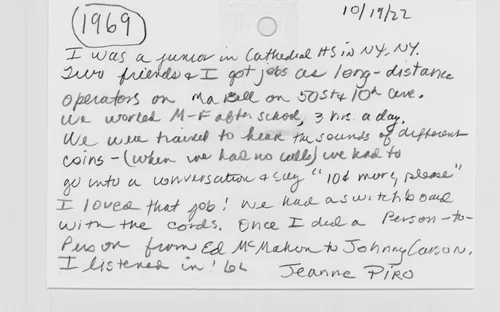 1969
10/19/22
I was a junior in Cathedral HS in NY, NY.
Two friends & I got jobs as long-distance
operators on Ma Bell on 50St & 10th Ave.
We worked M-F after school, 3 hrs. a day.
We were trained to hear the sounds of different
coins - (when we had no calls) we had to
go into a conversation & say "10¢ more, please"
I loved that job! We had a switchboard
with the cords. Once I did a Person-to-
Person from Ed McMahon to Johnny Carson.
I listened in!
Jeanne Piro